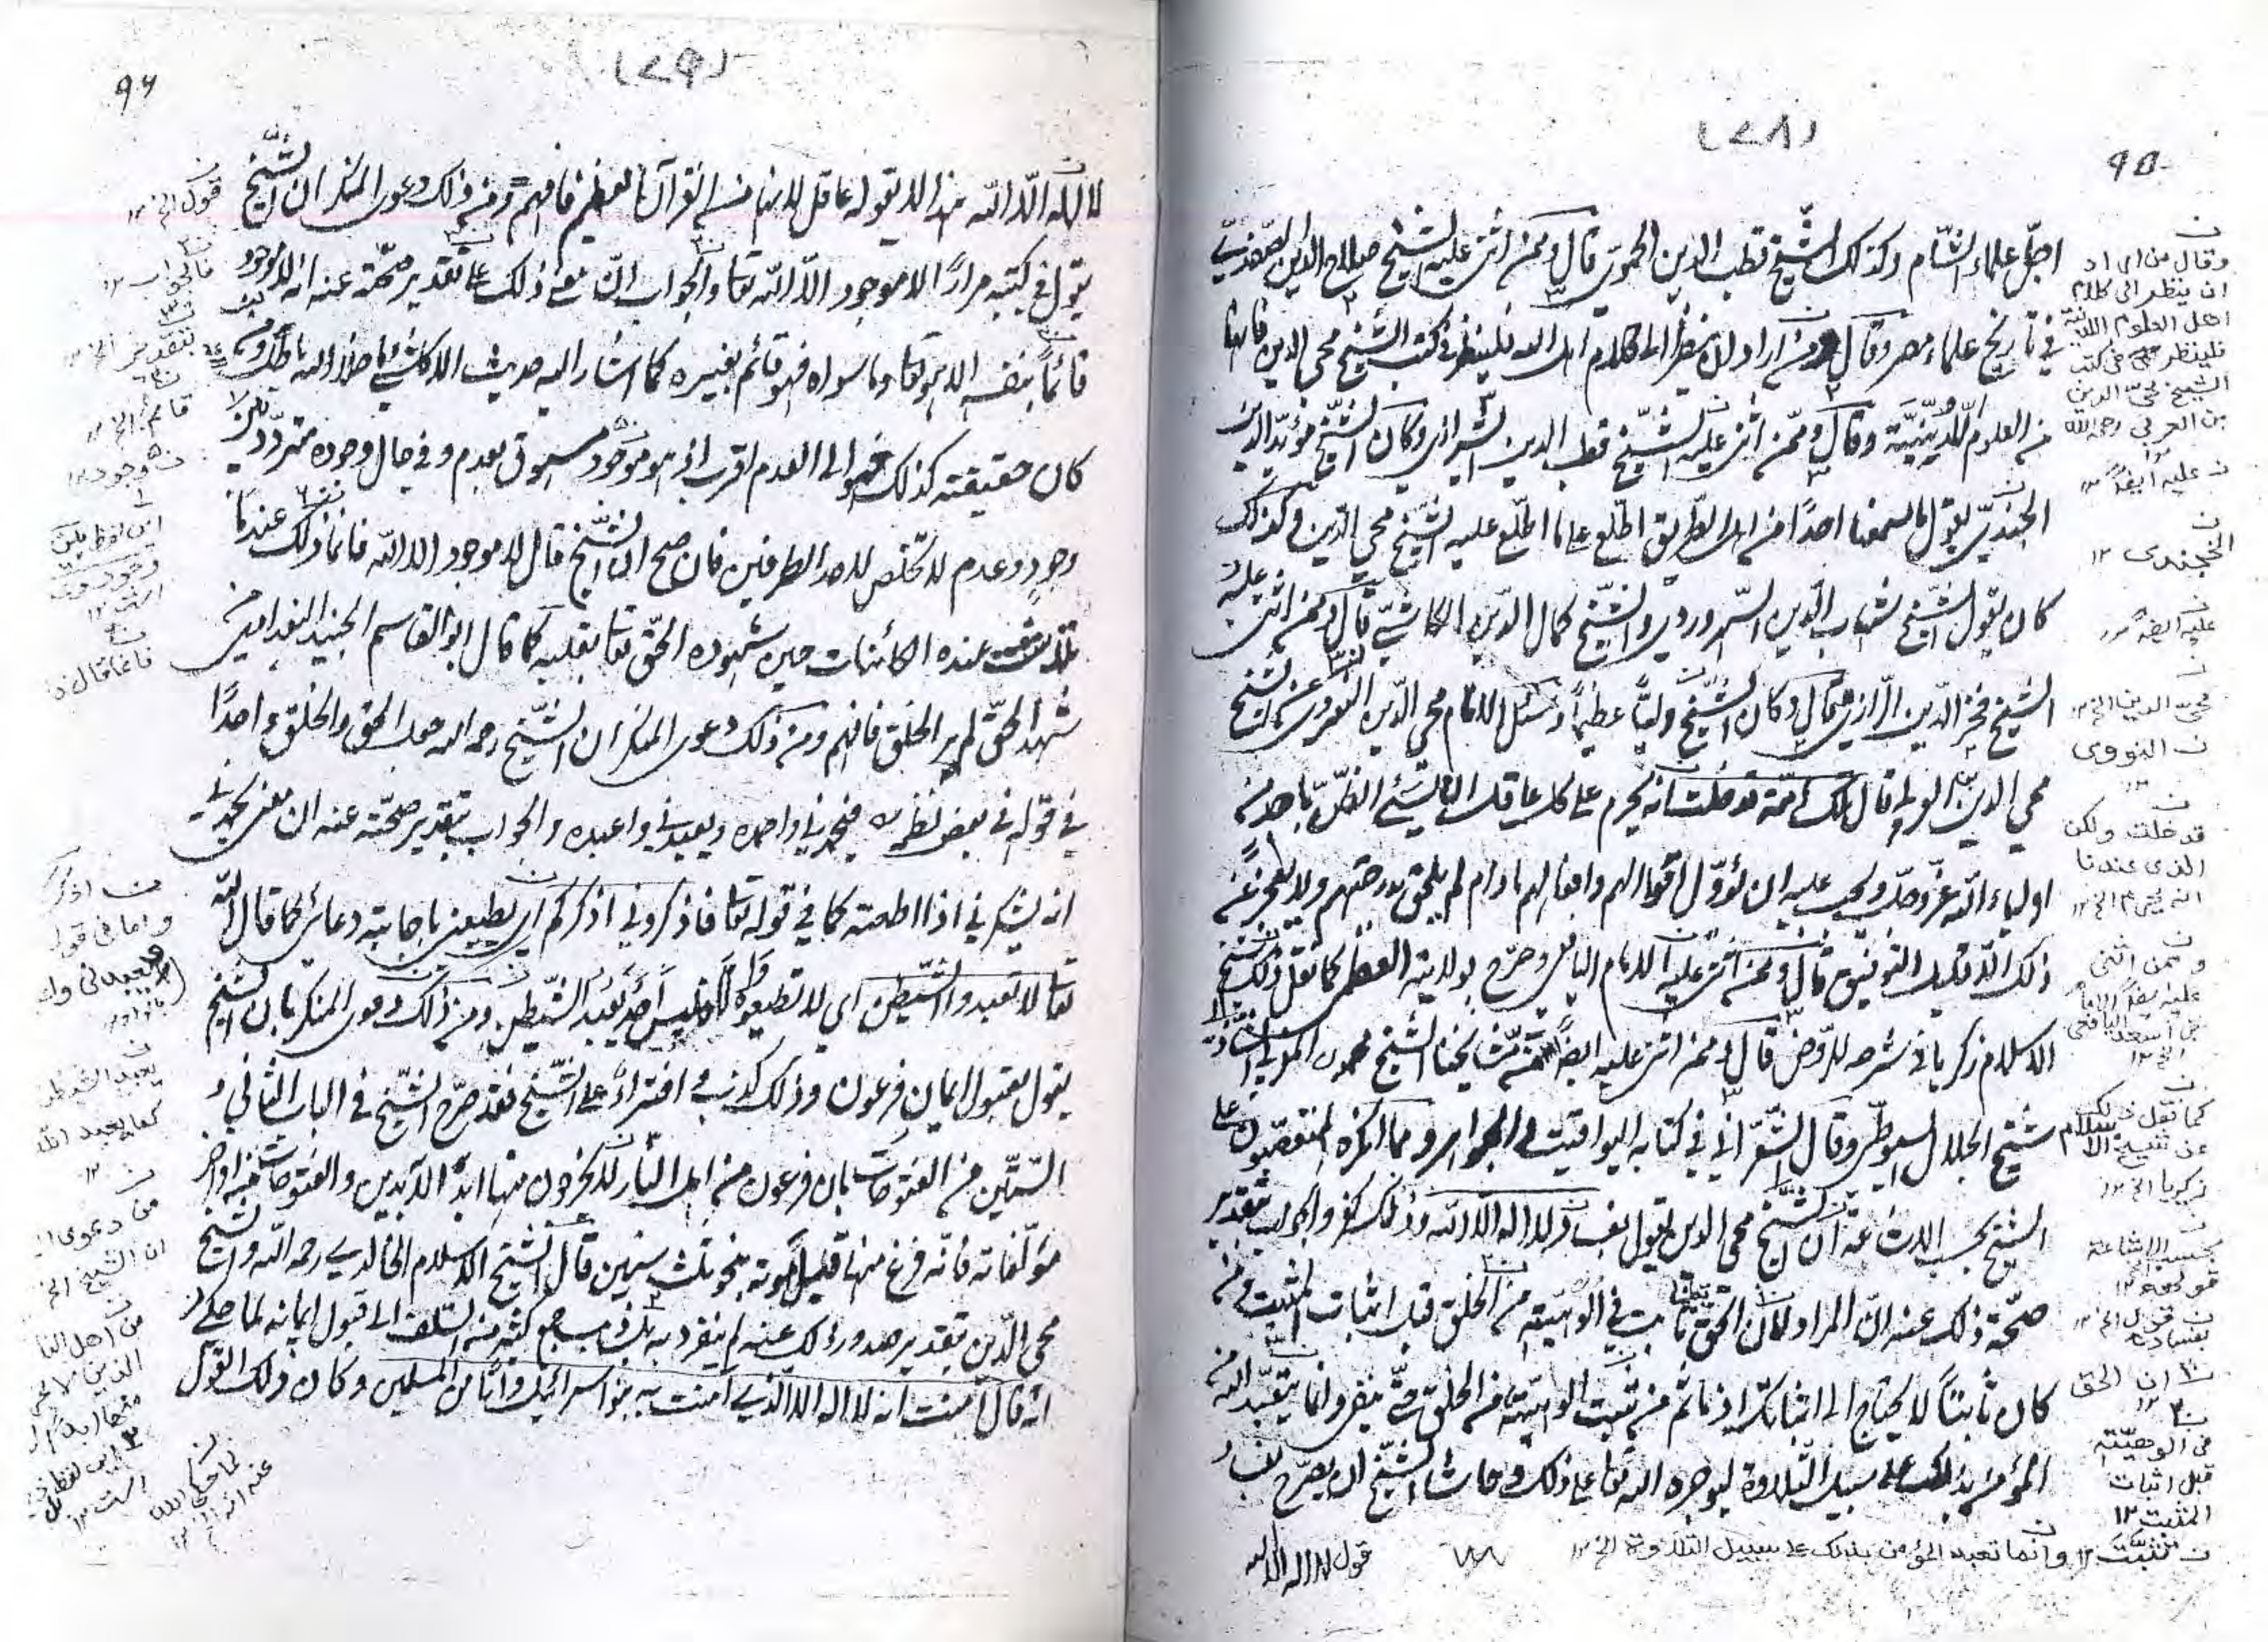 (٢٨)
٩٥
اجلّ علماء الشام وكذلك الشيخ قطب الدين الحموي قال وممن اثنى عليه الشيخ صلاح الدين الصفدي
في تاريخ علماء مصر وقال من اراد ان ينظر الى كلام اهل فلينظر في كتب الشيخ محي الدين
من العلوم اللدنية وقال وممن اثنى عليه الشيخ قطب الدين الشيرازي وكان الشيخ مؤيد الدين
الجندي يقول ما سمعنا احدًا من اهل الطريق اطلع على ما اطلع عليه الشيخ محي الدين وكذلك
كان يقول الشيخ شهاب الدين السهروردي والشيخ كمال الدين الكاشي قال وممن اثنى عليه
الشيخ فخر الدين الرازي وقال كان الشيخ وليًّا عظيمًا وسئل الامام محي الدين النووي عن الشيخ
محي الدين فقال تلك امة قد خلت انه يحرم على كل عاقل ان يسيء الظن باحد من
اولياء الله عز وجل ويجب عليه ان يؤول اقوالهم وافعالهم ما دام لم يلحق بدرجتهم ولا يعجز عن
ذلك الا قليل التوفيق قال وممن اثنى عليه الامام اليافعي وصرح بولايته العظمى كما نقل ذلك شيخ
الاسلام زكريا في شرحه للروض قال وممن اثنى عليه ايضًا شيخنا الشيخ محمد المغربي الشاذلي
شيخ الجلال السيوطي وقال الشعراني في كتابه اليواقيت والجواهر ومما انكره المتعصبون على
الشيخ بحسب الاشاعة ان الشيخ محي الدين يقول بفساد قول لا اله الا الله وذلك كفر والجواب بتقدير
صحة ذلك عنه ان المراد ان الحق تعالى ثابت في ألوهيته من الخلق قبل اثبات المثبت ومن
كان ثابتًا لا يحتاج الى اثباتك اذ ما ثم من تثبت الوهيته من الخلق حتى ينفى وانما يتعبد الله
المؤمن بذلك على سبيل التلاوة ليوجره الله تعالى على ذلك وحاشا الشيخ ان يصرح بفساد
قول لا اله الا الله
وقال من اراد
ان ينظر الى كلام
اهل العلوم اللدنية
فلينظر في كتب
الشيخ محي الدين
بن العربي رحمه الله
ن عليه ايضًا ١٢
الخجندى ١٢
عليه ايضًا ١٢
محى الدين الخ ١٢
ن النووى
قد خلت ولكن
الذى عندنا
انه يحرم الخ ١٢
وممن اثنى
كما نقل ذلك
عن شيخ الاسلام
زكريا الخ ١٢
بحسب الاشاعة
ن ان الحق
فى الوهيته
قبل اثبات
المثبت ١٢
وانما تعبد المؤمن بذلك على سبيل التلاوة الخ ١٢
(٢٩)
٩٦
لا اله الا الله هذا لا يقوله عاقل لانها من القرآن العظيم فافهم ومن ذلك دعوى المنكر ان الشيخ
يقول في كتبه مرارًا لا موجود الا الله تعالى والجواب ان معنى ذلك على تقدير صحته عنه انه لا موجود
قائمًا بنفسه الا هو تعالى وما سواه فهو قائم بغيره كما اشار اليه حديث الا كل شيء ما خلا الله باطل ومن
كان حقيقته كذلك فهو الى العدم اقرب اذ هو موجود مسبوق بعدم وفي حال وجوده متردد بين
وجود وعدم لا تخلص لاحد الطرفين فان صح ان الشيخ قال لا موجود الا الله فانما ذلك عندما
تلاشت عنده الكائنات حين شهوده الحق تعالى بقلبه كما قال ابو القاسم الجنيد البغدادي من
شهد الحق لم ير الخلق فافهم ومن ذلك دعوى المنكر ان الشيخ رحمه الله جعل الحق والخلق واحدًا
في قوله في بعض نظمه فيحمدني واحمده ويعبدني واعبده والجواب بتقدير صحته عنه ان معنى يحمدني
انه يشكرني اذا اطعته كما في قوله تعالى فاذكروني اذكركم اي يطيعني باجابته دعائي كما قال الله
تعالى لا تعبدوا الشيطن اي لا تطيعوه والا فليس احد يعبد الشيطن ومن ذلك دعوى المنكر بان الشيخ
يقول بقبول ايمان فرعون وذلك كذب وافتراء على الشيخ فقد صرح الشيخ في الباب الثاني و
الستين من الفتوحات بان فرعون من اهل النار لا يخرجون منها ابد الآبدين والفتوحات من اواخر
مؤلفاته فانه فرغ منها قبل موته بنحو ثلث سنين قال شيخ الاسلام الخالدي رحمه الله والشيخ
محي الدين بتقدير صدور ذلك عنه لم ينفرد به بل ذهب جمع كثير من السلف الى قبول ايمانه لما حكي
انه قال آمنت انه لا اله الا الذي آمنت به بنو اسرائيل وانا من المسلمين وكان ذلك القول
قوله الخ ١٢
فالجواب ١٢
بتقدير الخ ١٢
قائم الخ ١٢
واما فى قوله
يعبد الشيطن
كما يعبد الله
من دعوى
ان الشيخ الخ
من اهل النار
الذين لا